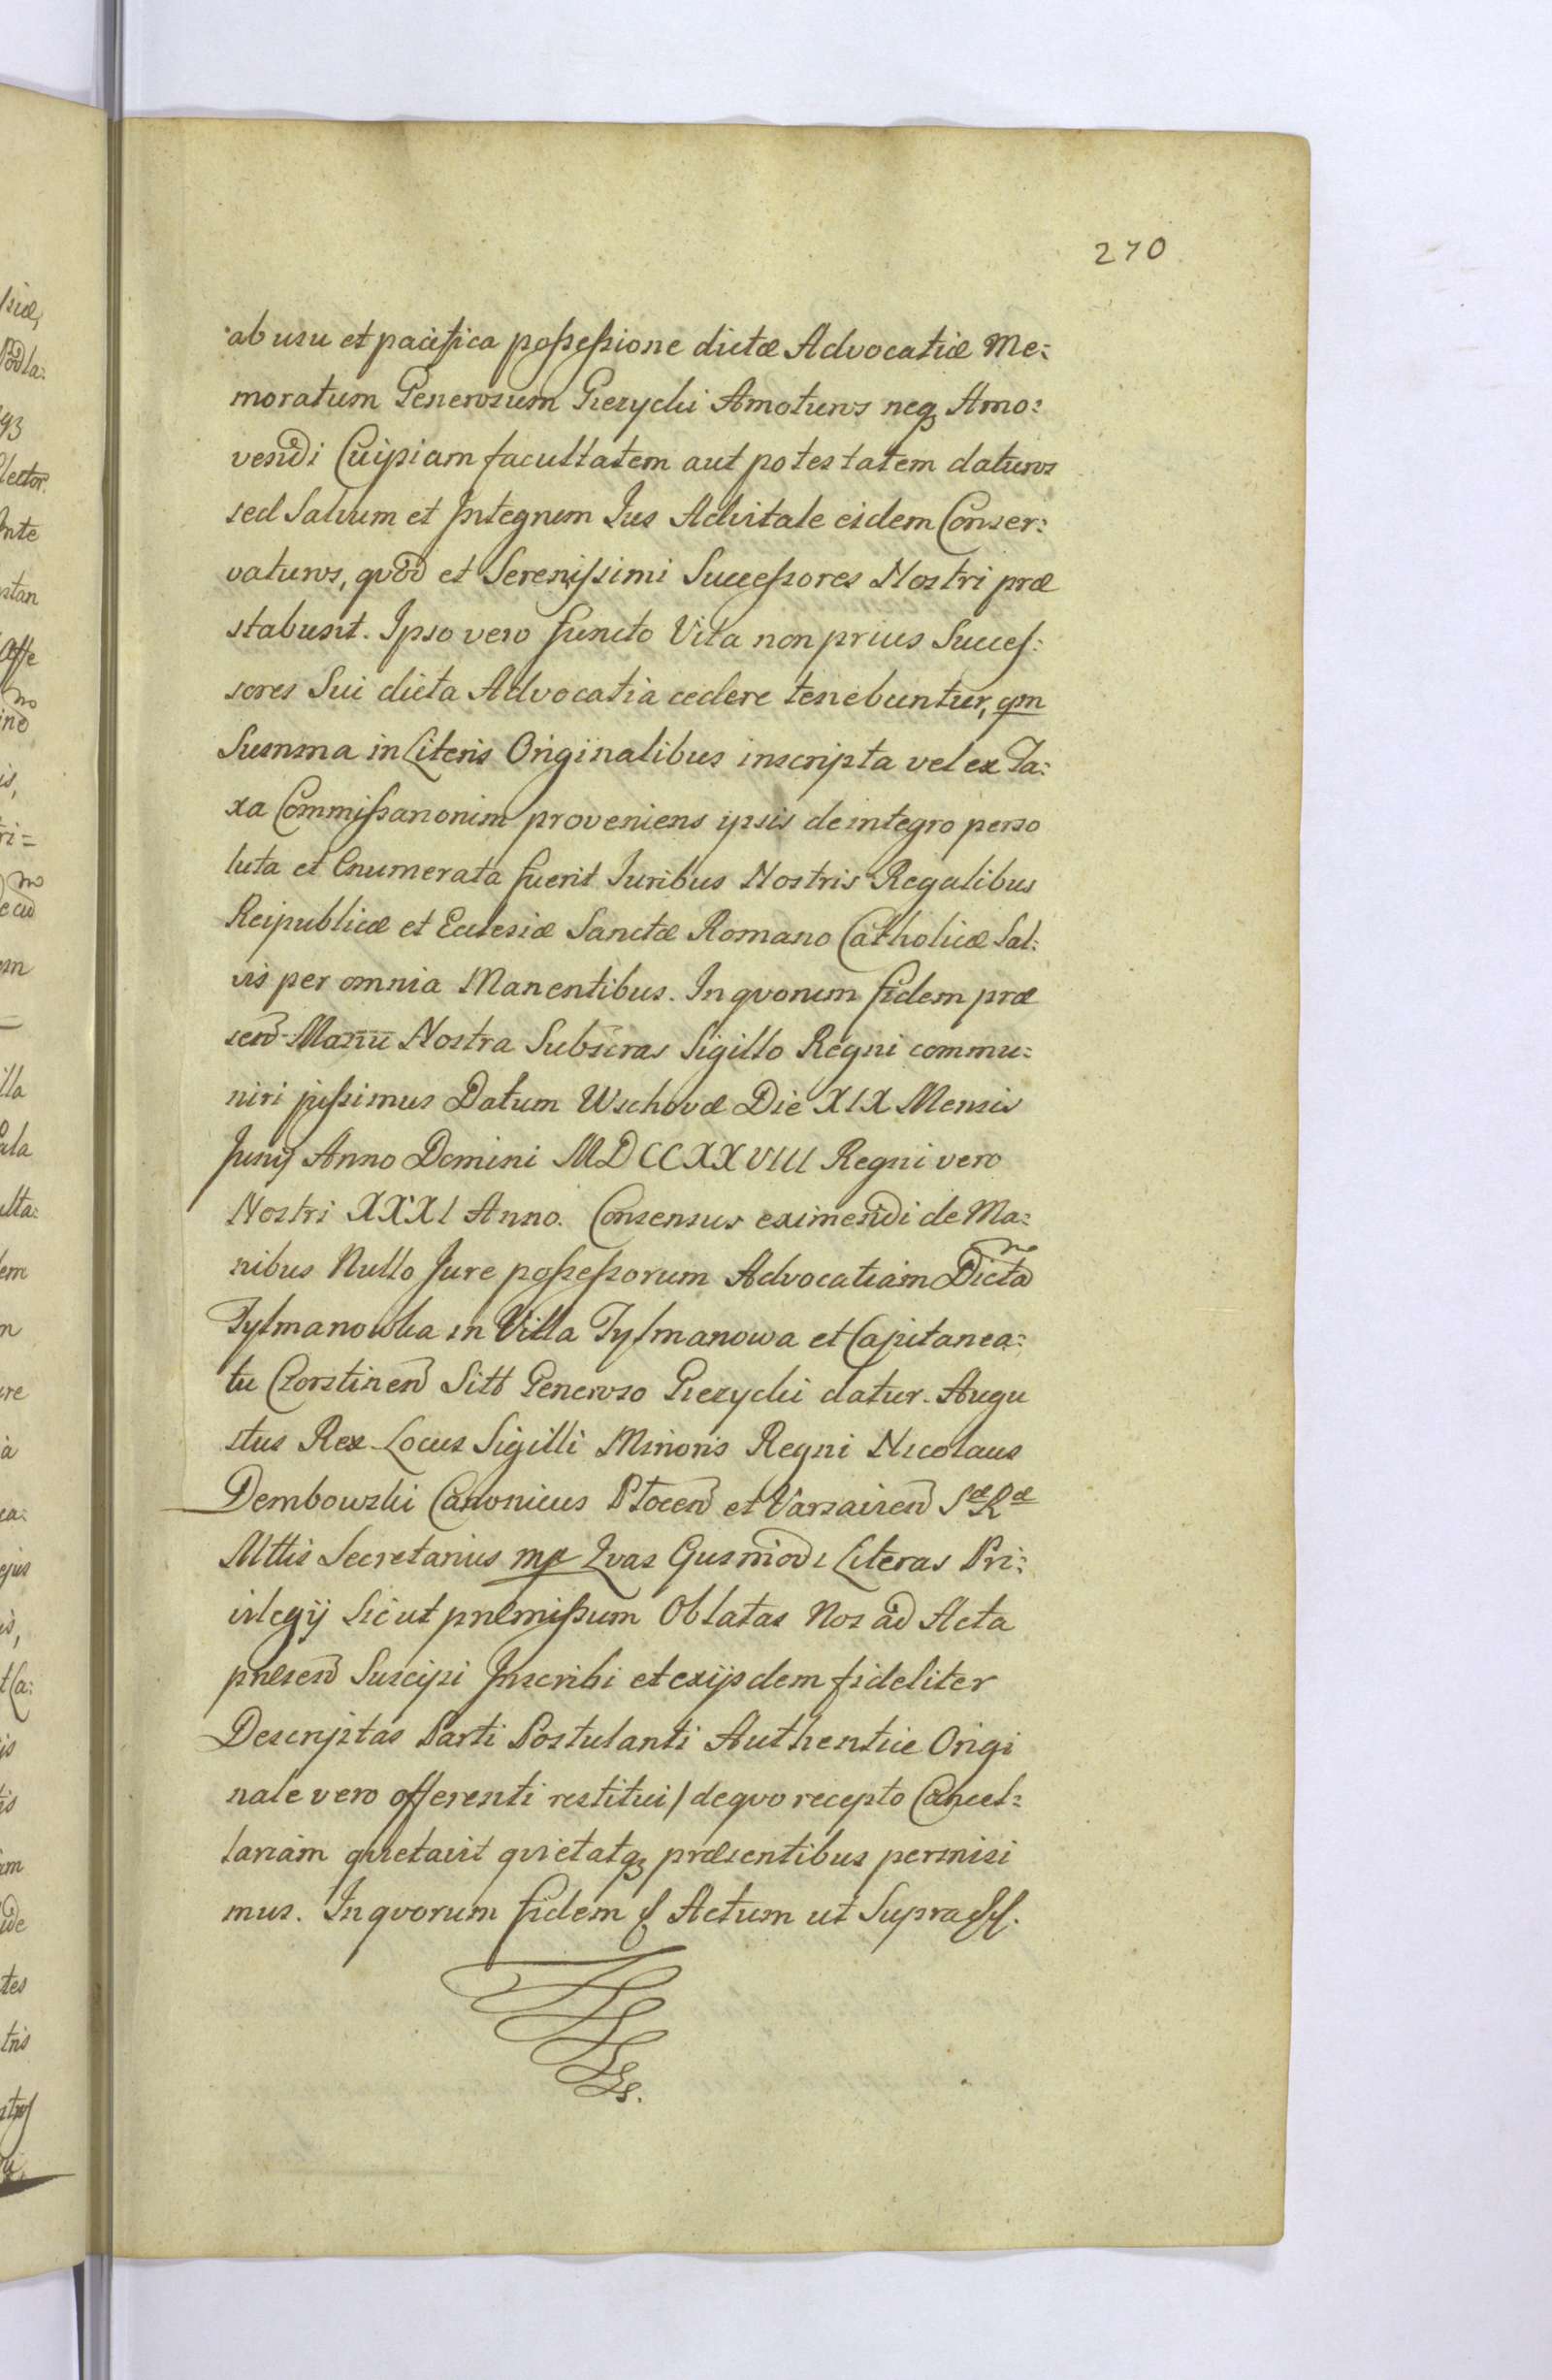 270
ab usu et pacifica possessione dictæ Advocatiæ Me:
moratum Generosum Giezycki Amoturos neq3 Amo:
vendi Cuipiam facultatem aut potestatem daturos
sed Salvum et Integrum Jus Advitale eidem Conser:
vaturos, qvod et Serenissimi Successores Nostri præ
stabunt. Ipso vero functo Vita non prius Succes:
sores Sui dicta Advocatia cedere tenebuntur, qm
Summa in Literis Originalibus inscripta vel ex Ta:
xa Commissariorum proveniens ipsis de integro perso
luta et Enumerata fuerit Juribus Nostris Regalibus
Reipublicæ et Ecclesiæ Sanctæ Romano Catholicæ Sal:
vis per omnia Manentibus. In qvorum fidem præ
sen̄ Manu Nostra Subscras Sigillo Regni commu:
niri jussimus Datum Wschovæ Die XIX Mensis
Junij Anno Domini MDCCXXVIII Regni vero
Nostri XXXI Anno. Consensus eximendi de Ma:
nibus Nullo Jure possessorum Advocatiam Dicta
Tylmanowka in Villa Tylmanowa et Capitanea:
tu Czorstinen̄ Sitt Generoso Giezycki datur. Augu
stus Rex Locus Sigilli Minoris Regni Nicolaus
Dembowski Canonicus Płocen̄ et Varsavien̄ Sæ Ræ
Mttis Secretarius mp Qvas Eiusmodi Literas Pri:
vilegij Sicut præmissum Oblatas Nos ad Acta
præsen̄ Suscipi Inscribi et exijsdem fideliter
Descriptas Parti Postulanti Authentice Origi
nale vero offerenti restitui / de qvo recepto Cancel:
lariam qvietavit qvietatq3 præsentibus permisi
mus. In qvorum fidem Actum ut Supra